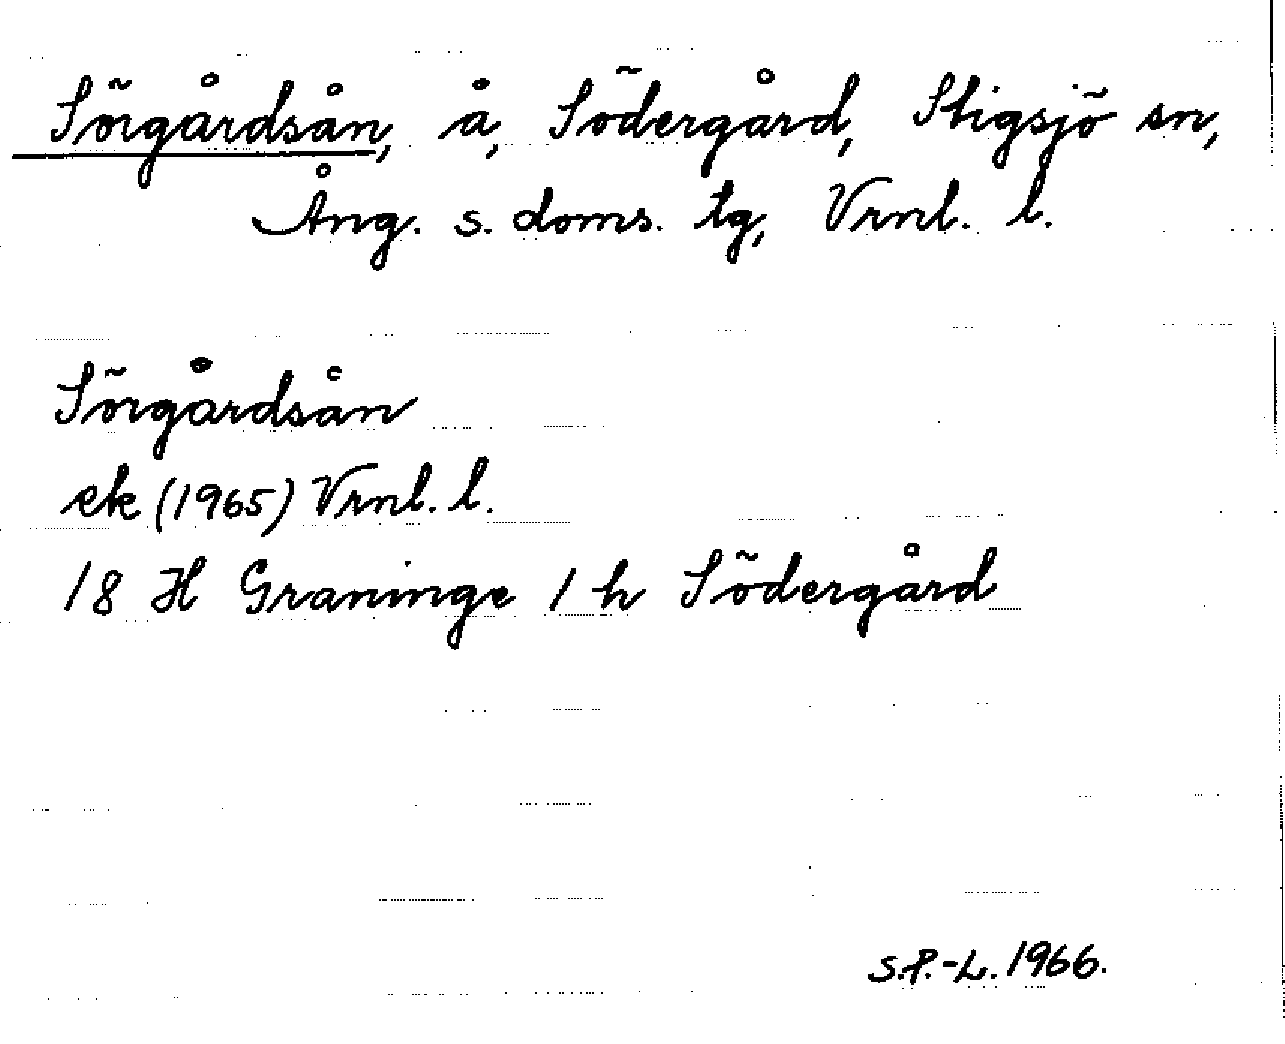 Sörgårdsån, å, Södergård, Stigsjö sn,
Ång. s. doms. tg, Vrnl. l.
Sörgårdsån
ek (1965) Vrnl. l.
18 H Graninge 1 h Södergård
S.P.-L. 1966.